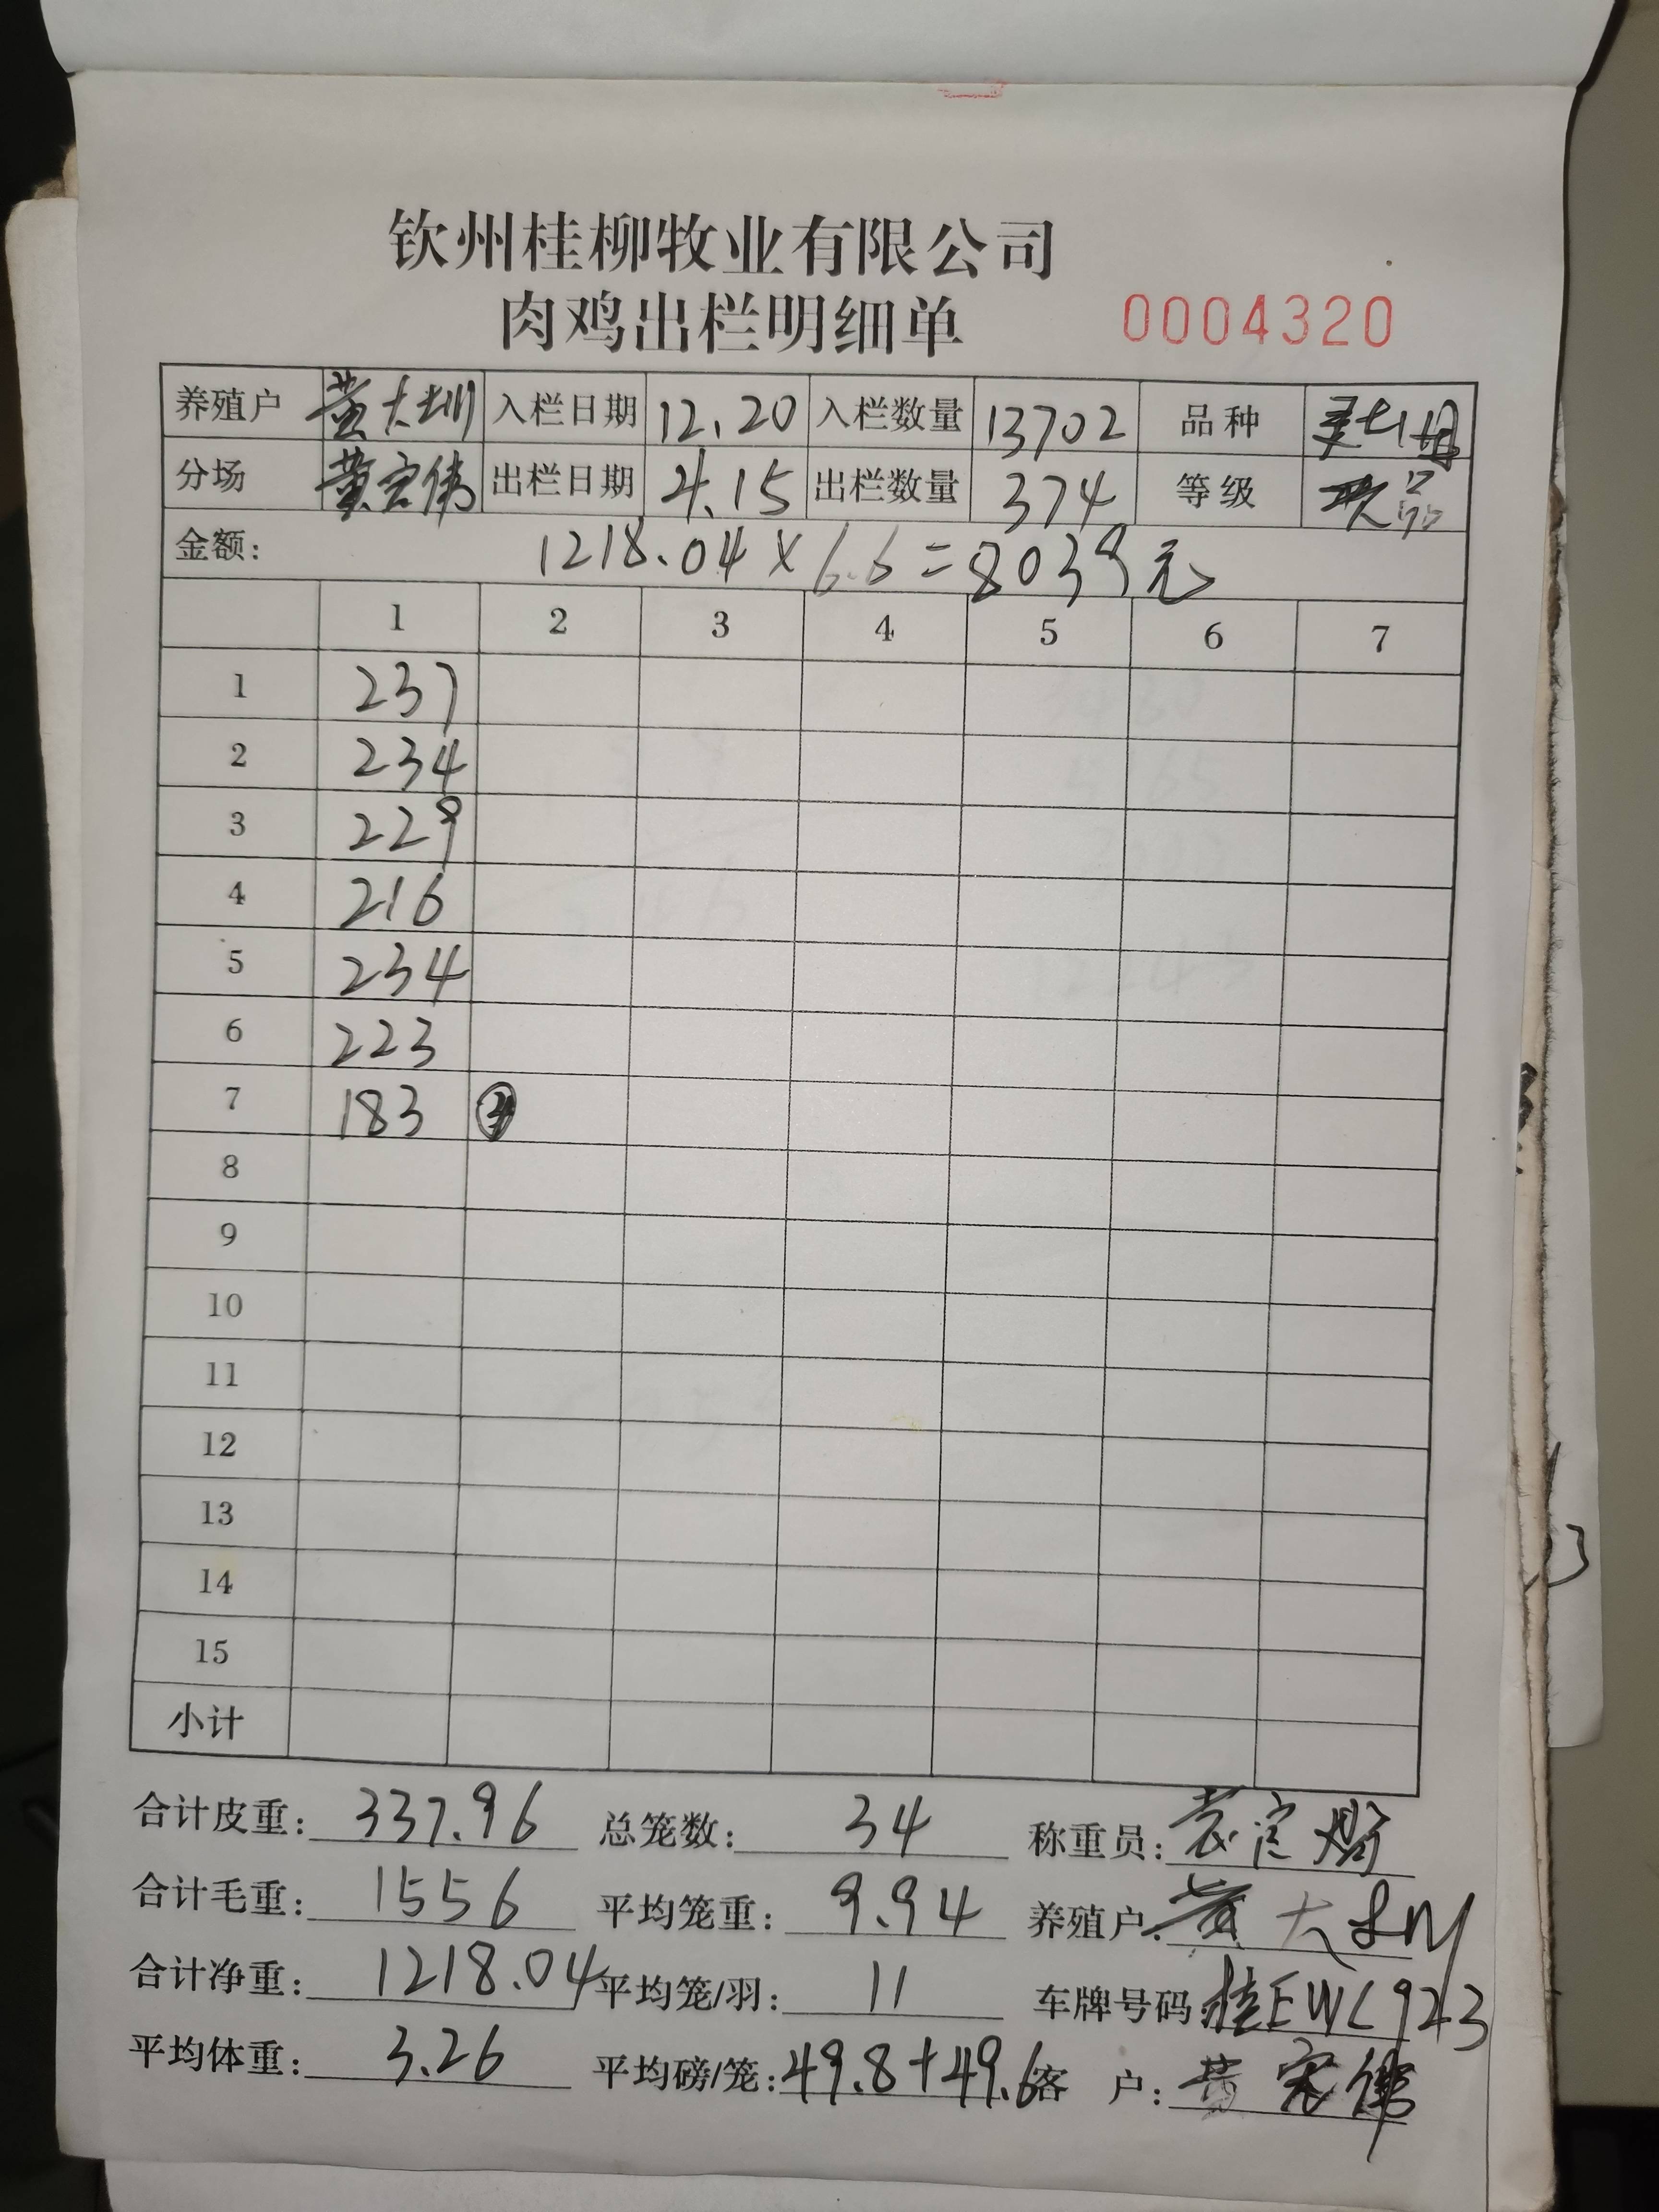 钦州桂柳牧业有限公司
肉鸡出栏明细单 0004320
养殖户 黄大圳 入栏日期 12.20 入栏数量 13702 品种
分场 黄宏伟 出栏日期 4.15 出栏数量 374 等级 品
金额: 1218.04 × 6.6 = 8039元
1 2 3 4 5 6 7
1 237
2 234
3 229
4 216
5 234
6 223
7 183
8
9
10
11
12
13
14
15
小计
合计皮重: 337.96 总笼数: 34 称重员:
合计毛重: 1556 平均笼重: 9.94 养殖户: 黄大圳
合计净重: 1218.04 平均笼/羽: 11 车牌号码: 桂EWL923
平均体重: 3.26 平均磅/笼: 49.8+49.6 客 户: 黄宏伟